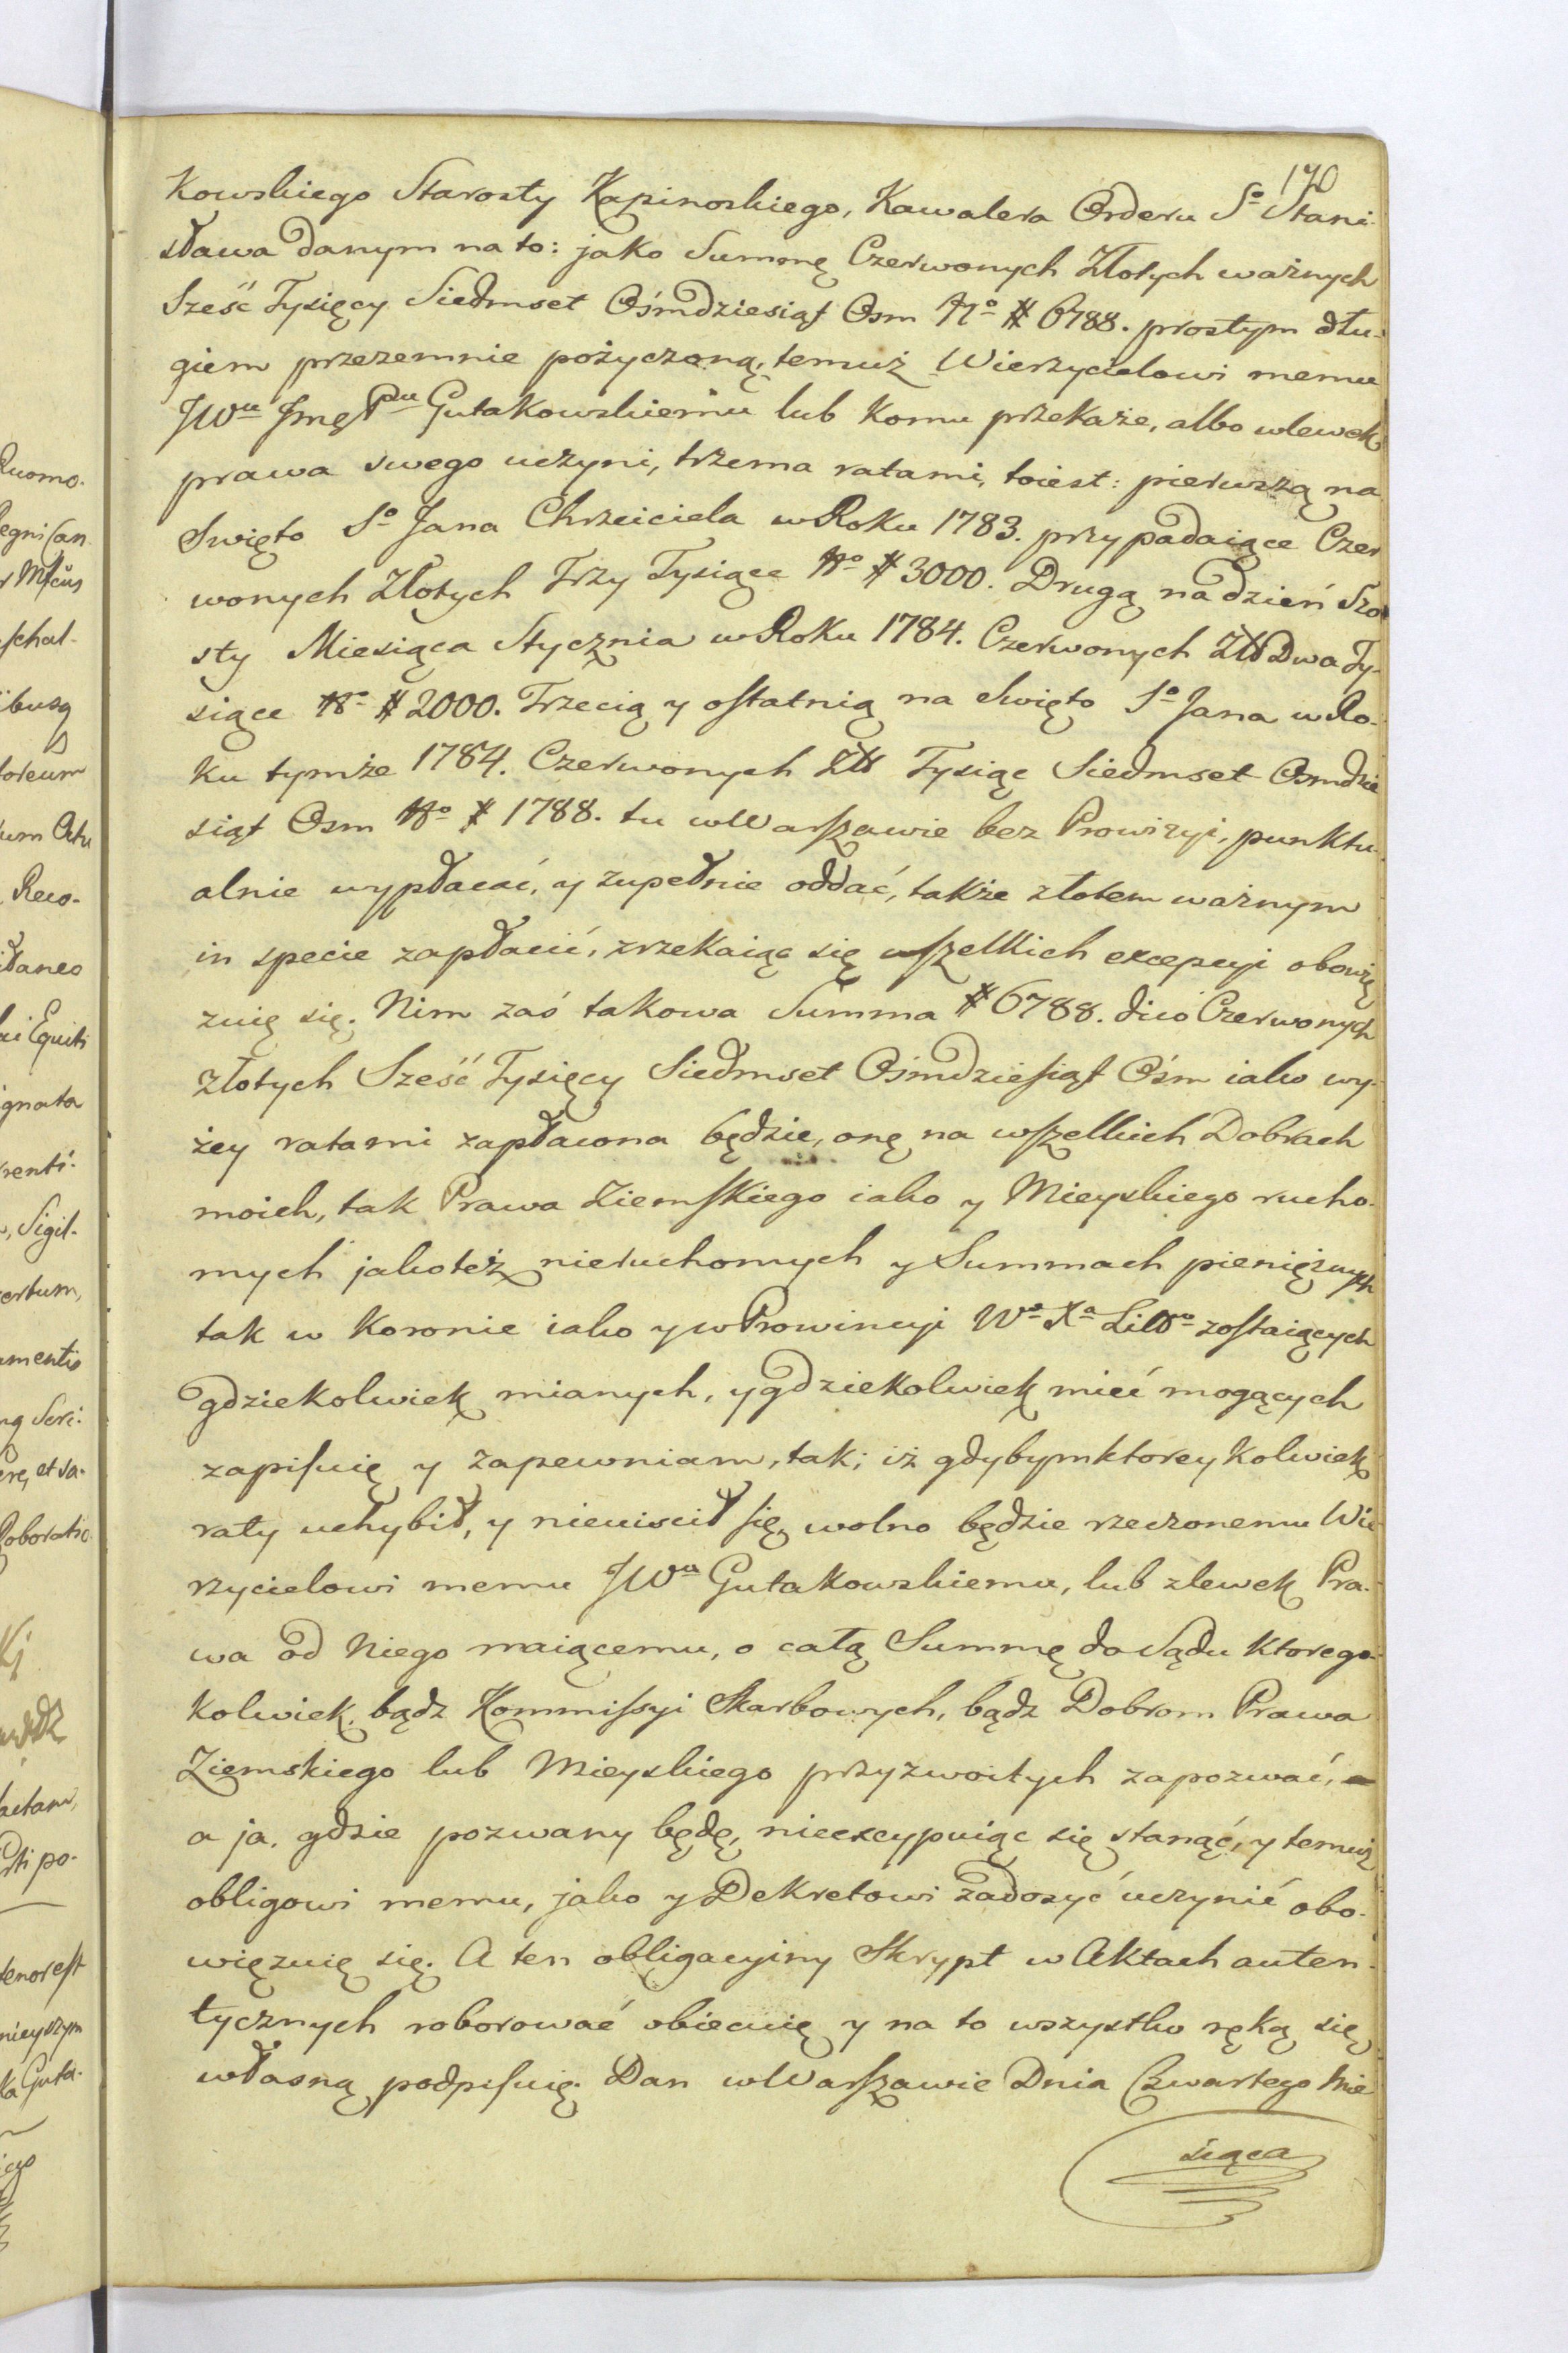 170
Kowskiego Starosty Kapinoskiego, Kawalera Orderu So Stani-
sława danym na to: jako Summę Czerwonych Złotych ważnych
Sześć Tysięcy Siedmset Ośmdziesiąt Osm No # 6788. prostym dłu-
giem przezemnie pożyczoną, temuż Wierzycielowi memu
JWu Jmę Pu Gutakowskiemu lub komu przekaże, albo wlewek
prawa swego uczyni, trzema ratami, toiest: pierwszą na
Swięto So Jana Chrzciciela w Roku 1783. przypadaiące Czer
wonych Złotych Trzy Tysiące No # 3000. Drugą na dzień Szo
sty Miesiąca Stycznia w Roku 1784. Czerwonych Złł Dwa Ty-
siące No # 2000. Trzecią y ostatnią na Swięto So Jana w Ro-
ku tymże 1784. Czerwonych Złł Tysiąc Siedmset Osmdzie
siąt Osm No # 1788. tu w Warszawie bez Prowizyi, punktu-
alnie wypłacać, y zupełnie oddać, także złotem ważnym
in specie zapłacić, zrzekaiąc się wszelkich excepcyi obowią
zuię się. Nim zaś takowa Summa # 6788. dico Czerwonych
Złotych Sześć Tysięcy Siedmset Ośmdziesiąt Ośm iako wy-
żey ratami zapłacona będzie, onę na wszelkich Dobrach
moich, tak Prawa Ziemskiego iako y Mieyskiego rucho-
mych jakoteż nieruchomych y Summach pieniężnych
tak w Koronie iako y w Prowincyi Wo Xa Litto zostaiących
gdziekolwiek mianych, y gdziekolwiek mieć mogących
zapisuię y zapewniam, tak; iż gdybym ktorey kolwiek
raty uchybił, y nieuiscił się, wolno będzie rzeczonemu Wie
rzycielowi memu JWu Gutakowskiemu, lub zlewek Pra-
wa od Niego maiącemu, o całą Summę do Sądu ktorego-
kolwiek bądz Kommissyi Skarbowych, bądz Dobrom Prawa
Ziemskiego lub Mieyskiego przyzwoitych zapozwać, -
a ja, gdzie pozwany będę, nieexcypuiąc się stanąć, y temuż
obligowi memu, jako y Dekretowi zadosyć uczynić obo-
więzuię się. A ten obligacyiny Skrypt w Aktach auten-
tycznych roborować obiecuię y na to wszystko ręką się
własną podpisuię. Dan w Warszawie Dnia Czwartego Mie
siąca